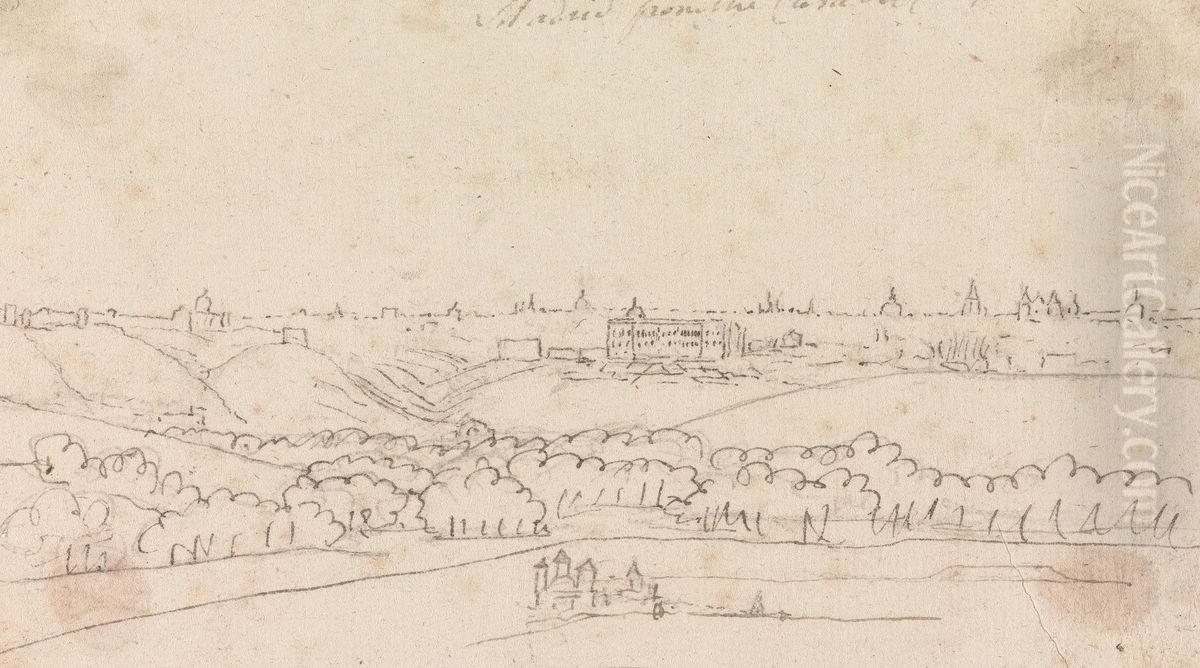 Madrid from the
NiceArtGallery.com